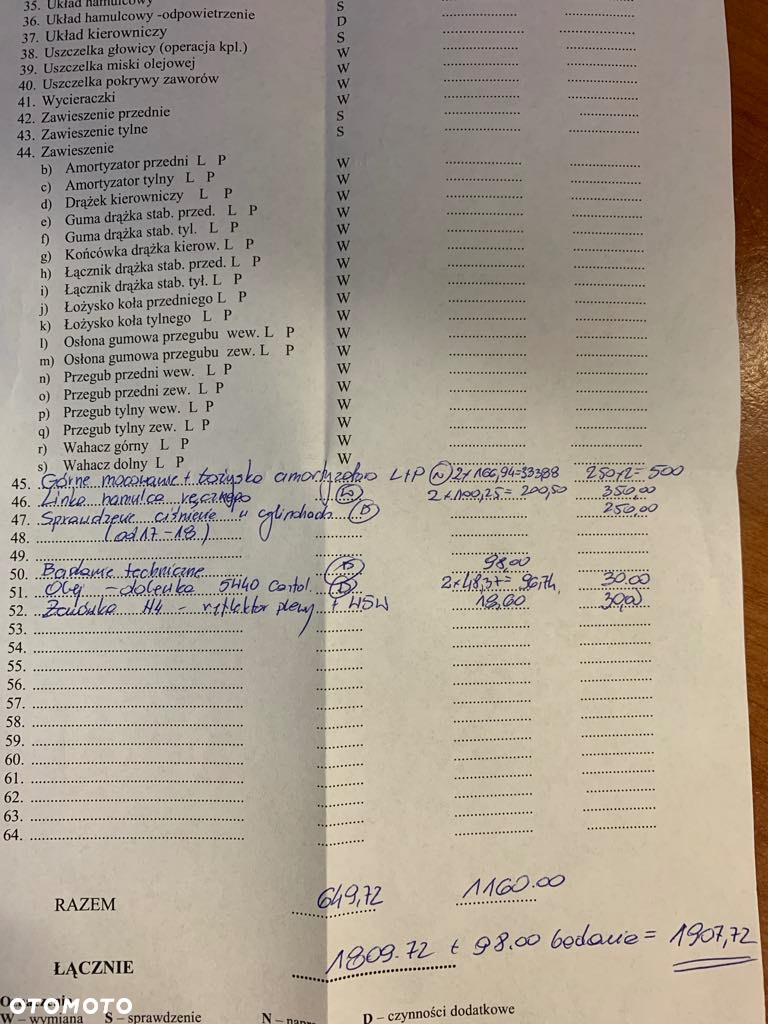 35. Układ hamulcowy S
36. Układ hamulcowy -odpowietrzenie D
37. Układ kierowniczy S
38. Uszczelka głowicy (operacja kpl.) W
39. Uszczelka miski olejowej W
40. Uszczelka pokrywy zaworów W
41. Wycieraczki W
42. Zawieszenie przednie S
43. Zawieszenie tylne S
44. Zawieszenie
b) Amortyzator przedni L P W
c) Amortyzator tylny L P W
d) Drążek kierowniczy L P W
e) Guma drążka stab. przed. L P W
f) Guma drążka stab. tyl. L P W
g) Końcówka drążka kierow. L P W
h) Łącznik drążka stab. przed. L P W
i) Łącznik drążka stab. tył. L P W
j) Łożysko koła przedniego L P W
k) Łożysko koła tylnego L P W
l) Osłona gumowa przegubu wew. L P W
m) Osłona gumowa przegubu zew. L P W
n) Przegub przedni wew. L P W
o) Przegub przedni zew. L P W
p) Przegub tylny wew. L P W
q) Przegub tylny zew. L P W
r) Wahacz górny L P W
s) Wahacz dolny L P W
45. Górne mocowanie + łożysko amortyzatora L+P N 2x166,94=333,88 250x2=500
46. Linka hamulca ręcznego 2x100,25=200,50 350,00
47. Sprawdzenie ciśnienia w cylindrach D 250,00
48. (od 17-18)
49.
50. Badanie techniczne 98,00
51. Olej - dolewka 5W40 Castrol D 2x48,37=96,74 30.00
52. Żarówka H4 - reflektor 18,60 30,00
53.
54.
55.
56.
57.
58.
59.
60.
61.
62.
63.
64.
RAZEM 649,72 1160.00
ŁĄCZNIE 1809.72 + 98.00 badanie = 1907,72
OTOMOTO
W – wymiana S – sprawdzenie N – D – czynności dodatkowe